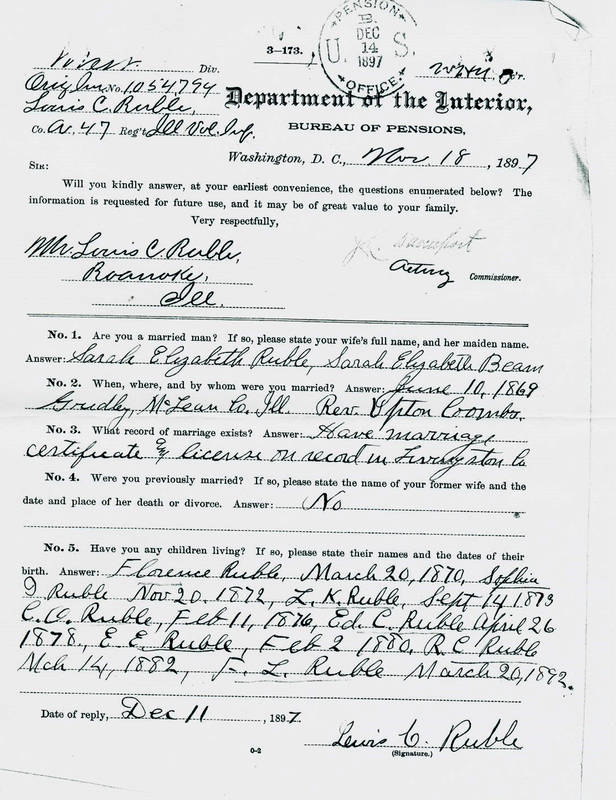 PENSION
B.
DEC
14
U. S.
1897
OFFICE
3-173.
Div.
Orig Inv No. 1054794
Louis C. Ruble,
Co. A. 47 Reg't Ill Vol. Inf.
Department of the Interior,
BUREAU OF PENSIONS,
Washington, D. C., Nov. 18, 1897
SIR:
Will you kindly answer, at your earliest convenience, the questions enumerated below? The
information is requested for future use, and it may be of great value to your family.
Very respectfully,
Mr. Louis C. Ruble,
Roanoke,
Ill.
Davenport
Acting Commissioner.
No. 1. Are you a married man? If so, please state your wife's full name, and her maiden name.
Answer: Sarah Elizabeth Ruble, Sarah Elizabeth Beam
No. 2. When, where, and by whom were you married? Answer: June 10, 1869
McLean Co. Ill. Rev. Upton Coombs.
No. 3. What record of marriage exists? Answer: Have marriage
certificate & license on record in Livingston Co
No. 4. Were you previously married? If so, please state the name of your former wife and the
date and place of her death or divorce. Answer: No
No. 5. Have you any children living? If so, please state their names and the dates of their
birth. Answer: Florence Ruble, March 20, 1870, Sophia
D Ruble Nov 20, 1872, L. K. Ruble, Sept 14 1873
C. O. Ruble, Feb 11, 1876, Ed. C. Ruble April 26
1878, E. E. Ruble, Feb 2 1880, R. C Ruble
Mch 14, 1882, F. L. Ruble March 20, 1892.
Date of reply, Dec 11, 1897
Lewis C. Ruble
(Signature.)
0-2